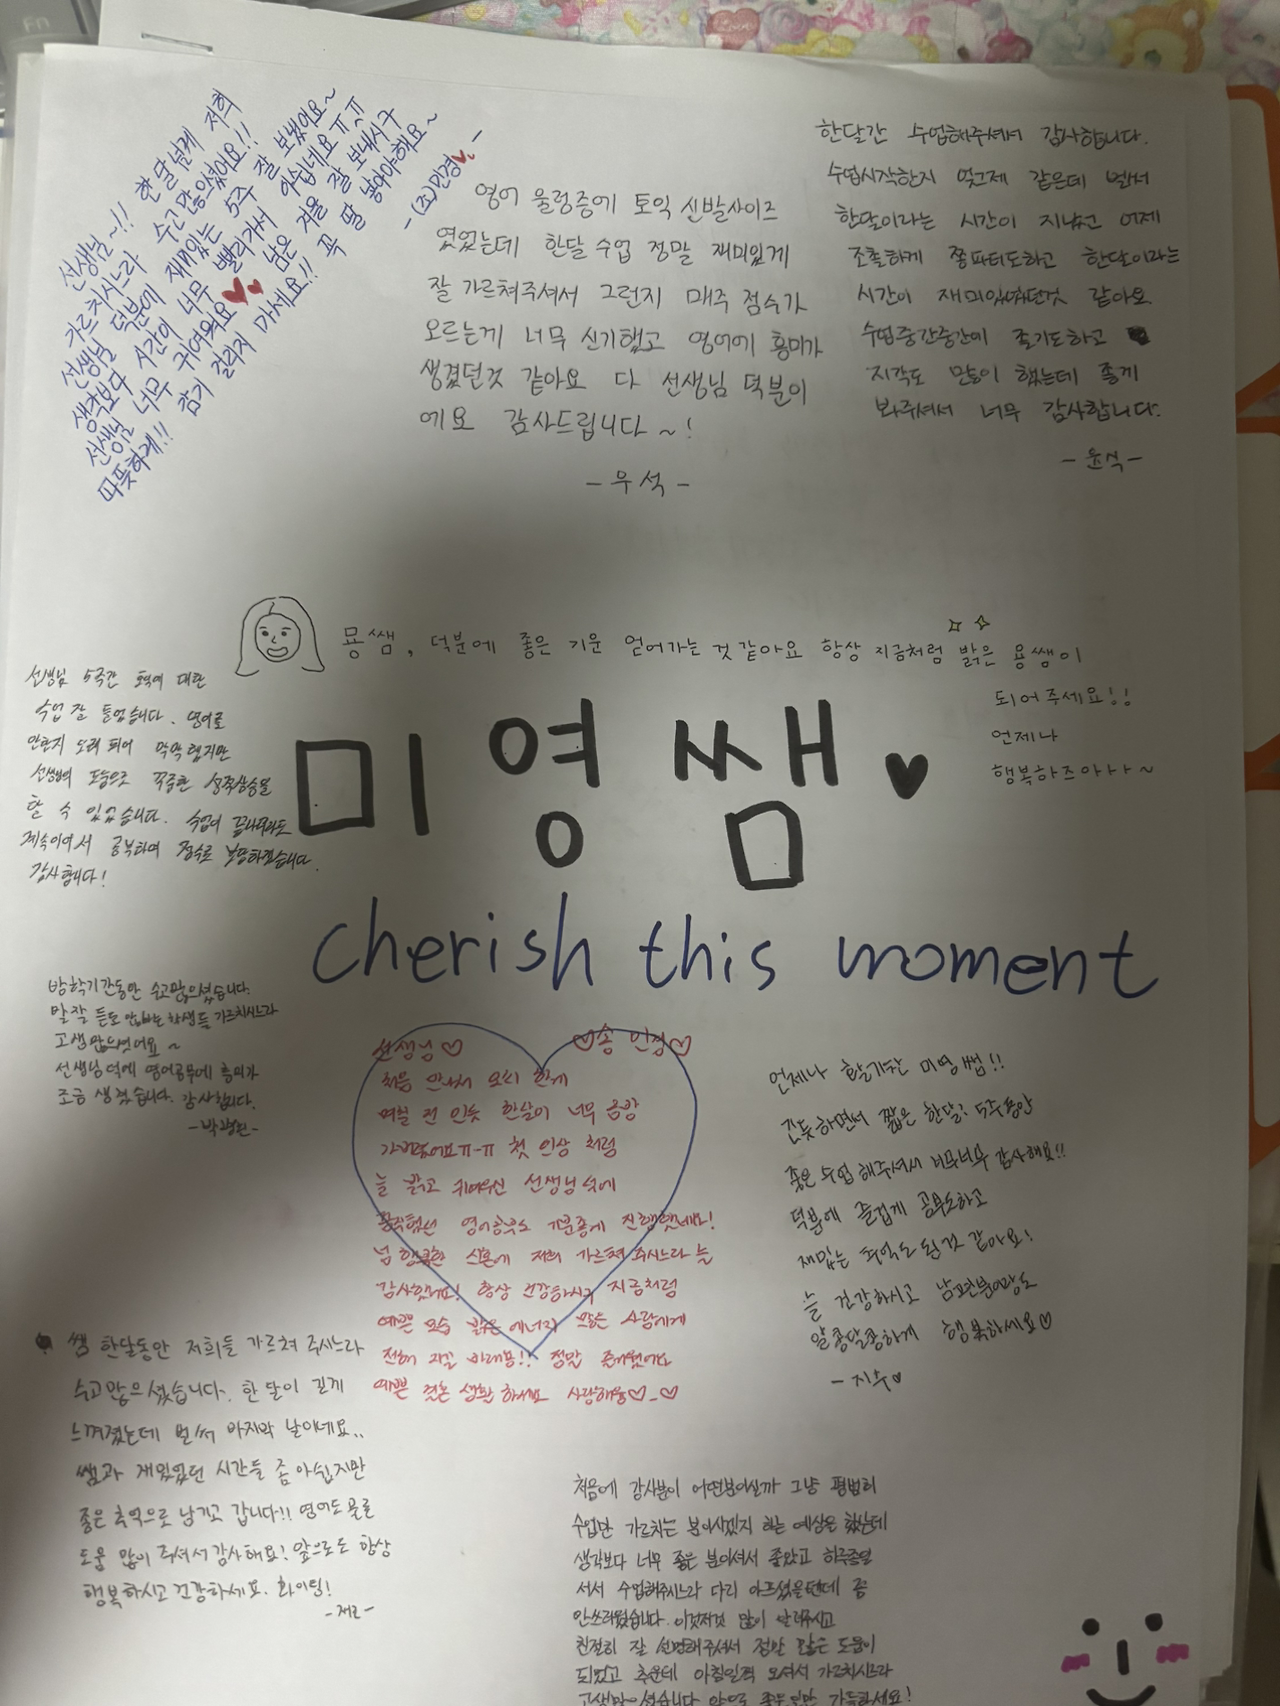 Fn
선생님~!! 한달넘게 저희
가르치시느라 수고많으셨어요!!
선생님 덕분에 재미있는 5주 잘 보냈어요~
생각보다 시간이 너무 빨리가서 아쉽네요 ㅠㅠ
선생님 너무 귀여워요 남은 겨울 잘 보내시구
따뜻하게!! 감기 걸리지 마세요!! 꼭 딸 낳아야해요~
-(조)민경-
영어 울렁증에 토익 신발사이즈
였었는데 한달 수업 정말 재미있게
잘 가르쳐주셔서 그런지 매주 점수가
오르는게 너무 신기했고 영어에 흥미가
생겼던것 같아요 다 선생님 덕분이
에요 감사드립니다~!
- 우석 -
한달간 수업해주셔서 감사합니다.
수업시작한지 엊그제 같은데 벌써
한달이라는 시간이 지났고 어제
조촐하게 쫑파티도하고 한달이라는
시간이 재미있었던것 같아요
수업중간중간에 졸기도하고
지각도 많이 했는데 좋게
봐주셔서 너무 감사합니다.
- 윤석 -
묭쌤, 덕분에 좋은 기운 얻어가는 것 같아요 항상 지금처럼 밝은 묭쌤이
되어주세요!!
언제나
행복하즈아ㅏㅏ~
선생님 5주간 토익에 대한
수업 잘 들었습니다. 영어로
안한지 오래 되어 막막했지만
선생님의 도움으로 꾸준한 성적상승을
할 수 있었습니다. 수업이 끝나더라도
계속이어서 공부하여 점수로 보답하겠습니다.
감사합니다!
미영쌤♥
cherish this moment
방학기간동안 수고많으셨습니다.
말잘 듣도 않는 학생들 가르치시느라
고생많으셨어요~
선생님덕에 영어공부에 흥미가
조금 생겼습니다. 감사합니다.
선생님♡ ♡송 인정♡
처음 만나서 오시 한게
며칠 전 인듯 한달이 너무 금방
가버렸어요ㅠ-ㅠ 첫 인상 처럼
늘 밝고 귀여우신 선생님 덕에
영어공부도 기분좋게 진행했네요!
넘 행복한 신혼에 저희 가르쳐 주시느라 늘
감사했어요! 항상 건강하시구 지금처럼
예쁜 모습 밝은 에너지 많은 사람에게
전해 지길 바래용!! 정말 즐거웠어요
예쁜 결혼 생활 하세요 사랑해용♡_♡
언제나 활기찬 미영쌤!!
긴듯하면서 짧은 한달! 5주동안
좋은 수업 해주셔서 너무너무 감사해요!!
덕분에 즐겁게 공부도하고
재밌는 추억도 된것 같아요!
늘 건강하시고 남편분이랑도
알콩달콩하게 행복하세요♡
- 지수♥
쌤 한달동안 저희들 가르쳐 주시느라
수고많으셨습니다. 한달이 길게
느껴졌는데 벌써 마지막 날이네요..
쌤과 재밌었던 시간들 좀 아쉽지만
좋은 추억으로 남기고 갑니다!! 영어도 물론
도움 많이 주셔서 감사해요! 앞으로도 항상
행복하시고 건강하세요. 화이팅!
처음에 강사분이 어떤분이실까 그냥 평범히
수업만 가르치는 분이시겠지 하는 예상을 했는데
생각보다 너무 좋은 분이셔서 좋았고 하루종일
서서 수업해주시느라 다리 아프셨을텐데 좀
안쓰러웠습니다. 이것저것 많이 알려주시고
친절히 잘 설명해주셔서 정말 많은 도움이
되었고 추운데 아침일찍 오셔서 가르치시느라
고생많으셨습니다 앞으로 좋은일만 가득하세요!